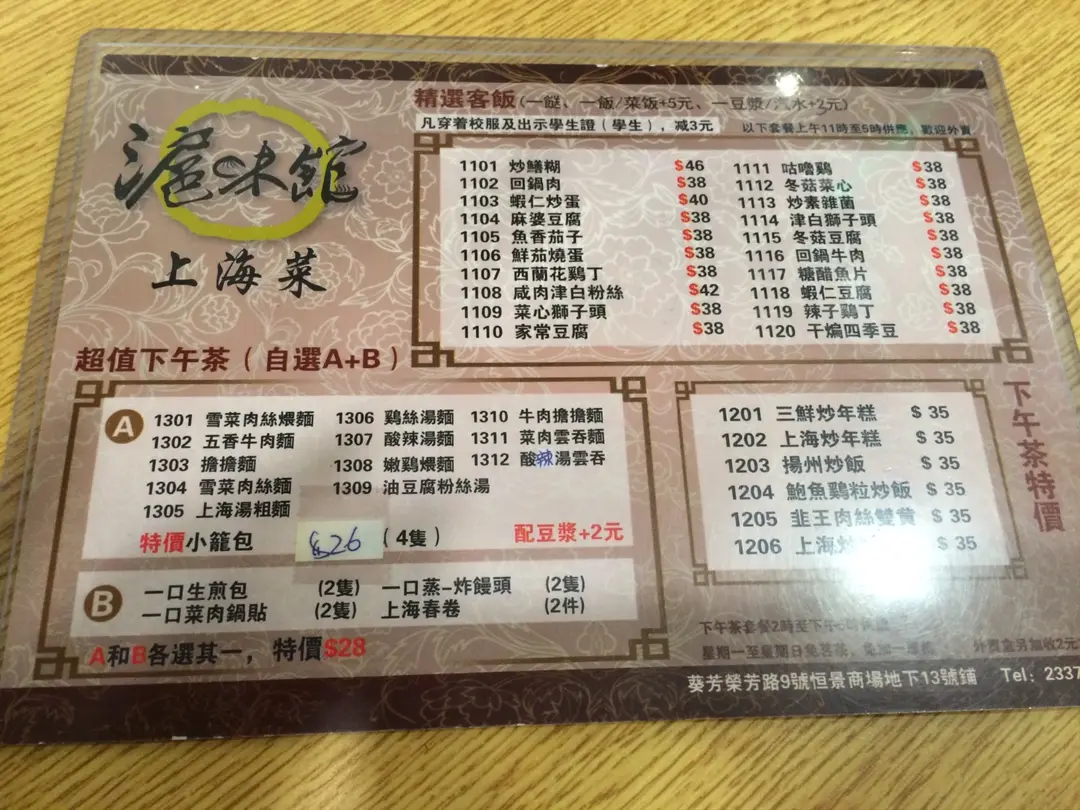 滬味館
上海菜
精選客飯(一餸、一飯/菜饭+5元、一豆漿/汽水+2元)
凡穿着校服及出示學生證(學生),减3元
以下套餐上午11時至5時供應,歡迎外賣
1101 炒鱔糊 $46
1102 回鍋肉 $38
1103 蝦仁炒蛋 $40
1104 麻婆豆腐 $38
1105 魚香茄子 $38
1106 鮮茄燒蛋 $38
1107 西蘭花鷄丁 $38
1108 咸肉津白粉絲 $42
1109 菜心獅子頭 $38
1110 家常豆腐 $38
1111 咕嚕鷄 $38
1112 冬菇菜心 $38
1113 炒素雜菌 $38
1114 津白獅子頭 $38
1115 冬菇豆腐 $38
1116 回鍋牛肉 $38
1117 糖醋魚片 $38
1118 蝦仁豆腐 $38
1119 辣子鷄丁 $38
1120 干煸四季豆 $38
超值下午茶(自選A+B)
A
1301 雪菜肉絲煨麵
1302 五香牛肉麵
1303 擔擔麵
1304 雪菜肉絲麵
1305 上海湯粗麵
1306 鷄絲湯麵
1307 酸辣湯麵
1308 嫩鷄煨麵
1309 油豆腐粉絲湯
1310 牛肉擔擔麵
1311 菜肉雲吞麵
1312 酸辣湯雲吞
特價小籠包 $26 (4隻)
配豆漿+2元
B
一口生煎包 (2隻)
一口菜肉鍋貼 (2隻)
一口蒸-炸饅頭 (2隻)
上海春卷 (2件)
A和B各選其一,特價$28
下午茶特價
1201 三鮮炒年糕 $ 35
1202 上海炒年糕 $ 35
1203 揚州炒飯 $ 35
1204 鮑魚鷄粒炒飯 $ 35
1205 韭王肉絲雙黄 $ 35
1206 上海炒 $ 35
下午茶套餐2時至下午
星期一至星期日免茶錢,
外賣盒另加收2元
葵芳榮芳路9號恒景商場地下13號鋪 Tel: 2337